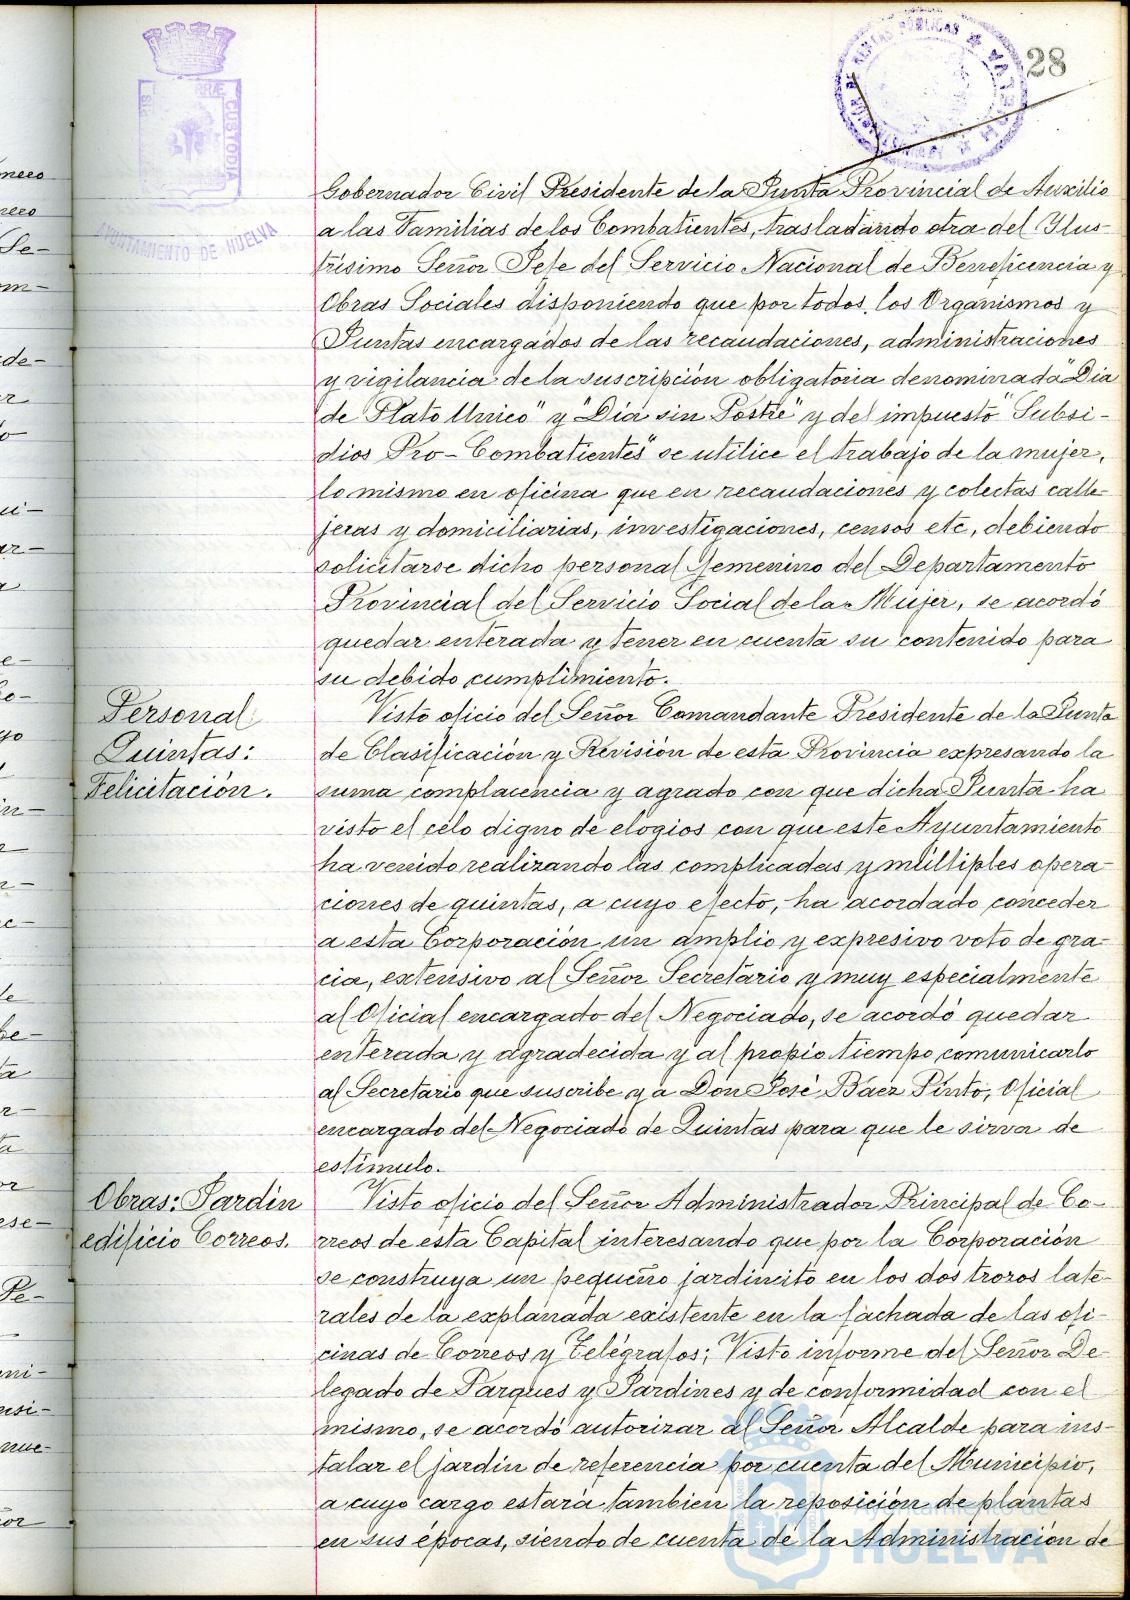 28
AYUNTAMIENTO DE HUELVA
CUSTODIA
Gobernador Civil Presidente de la Junta Provincial de Auxilio
a las Familias de los Combatientes, trasladando otra del Ilus-
trísimo Señor Jefe del Servicio Nacional de Beneficencia y
Obras Sociales disponiendo que por todos los Organismos y
Juntas encargados de las recaudaciones, administraciones
y vigilancia de la suscripción obligatoria denominada "Dia
de Plato Unico" y "Dia sin Postre" y del impuesto "Subsi-
dios Pro-Combatientes" se utilice el trabajo de la mujer,
lo mismo en oficina que en recaudaciones y colectas calle-
jeras y domiciliarias, investigaciones, censos etc, debiendo
solicitarse dicho personal femenino del Departamento
Provincial del Servicio Social de la Mujer, se acordó
quedar enterada y tener en cuenta su contenido para
su debido cumplimiento.
Personal
Quintas:
Felicitación.
Visto oficio del Señor Comandante Presidente de la Junta
de Clasificación y Revisión de esta Provincia expresando la
suma complacencia y agrado con que dicha Junta ha
visto el celo digno de elogios con que este Ayuntamiento
ha venido realizando las complicadas y múltiples opera-
ciones de quintas, a cuyo efecto, ha acordado conceder
a esta Corporación un amplio y expresivo voto de gra-
cia, extensivo al Señor Secretario y muy especialmente
al Oficial encargado del Negociado, se acordó quedar
enterada y agradecida y al propio tiempo comunicarlo
al Secretario que suscribe y a Don José Baez Pinto, Oficial
encargado del Negociado de Quintas para que le sirva de
estimulo.
Obras: Jardin
edificio Correos.
Visto oficio del Señor Administrador Principal de Co-
rreos de esta Capital interesando que por la Corporación
se construya un pequeño jardincito en los dos trozos late-
rales de la explanada existente en la fachada de las ofi-
cinas de Correos y Telégrafos; Visto informe del Señor De-
legado de Parques y Jardines y de conformidad con el
mismo, se acordó autorizar al Señor Alcalde para ins-
talar el jardin de referencia por cuenta del Municipio,
a cuyo cargo estará tambien la reposición de plantas
en sus épocas, siendo de cuenta de la Administración de
Ayuntamiento de
HUELVA